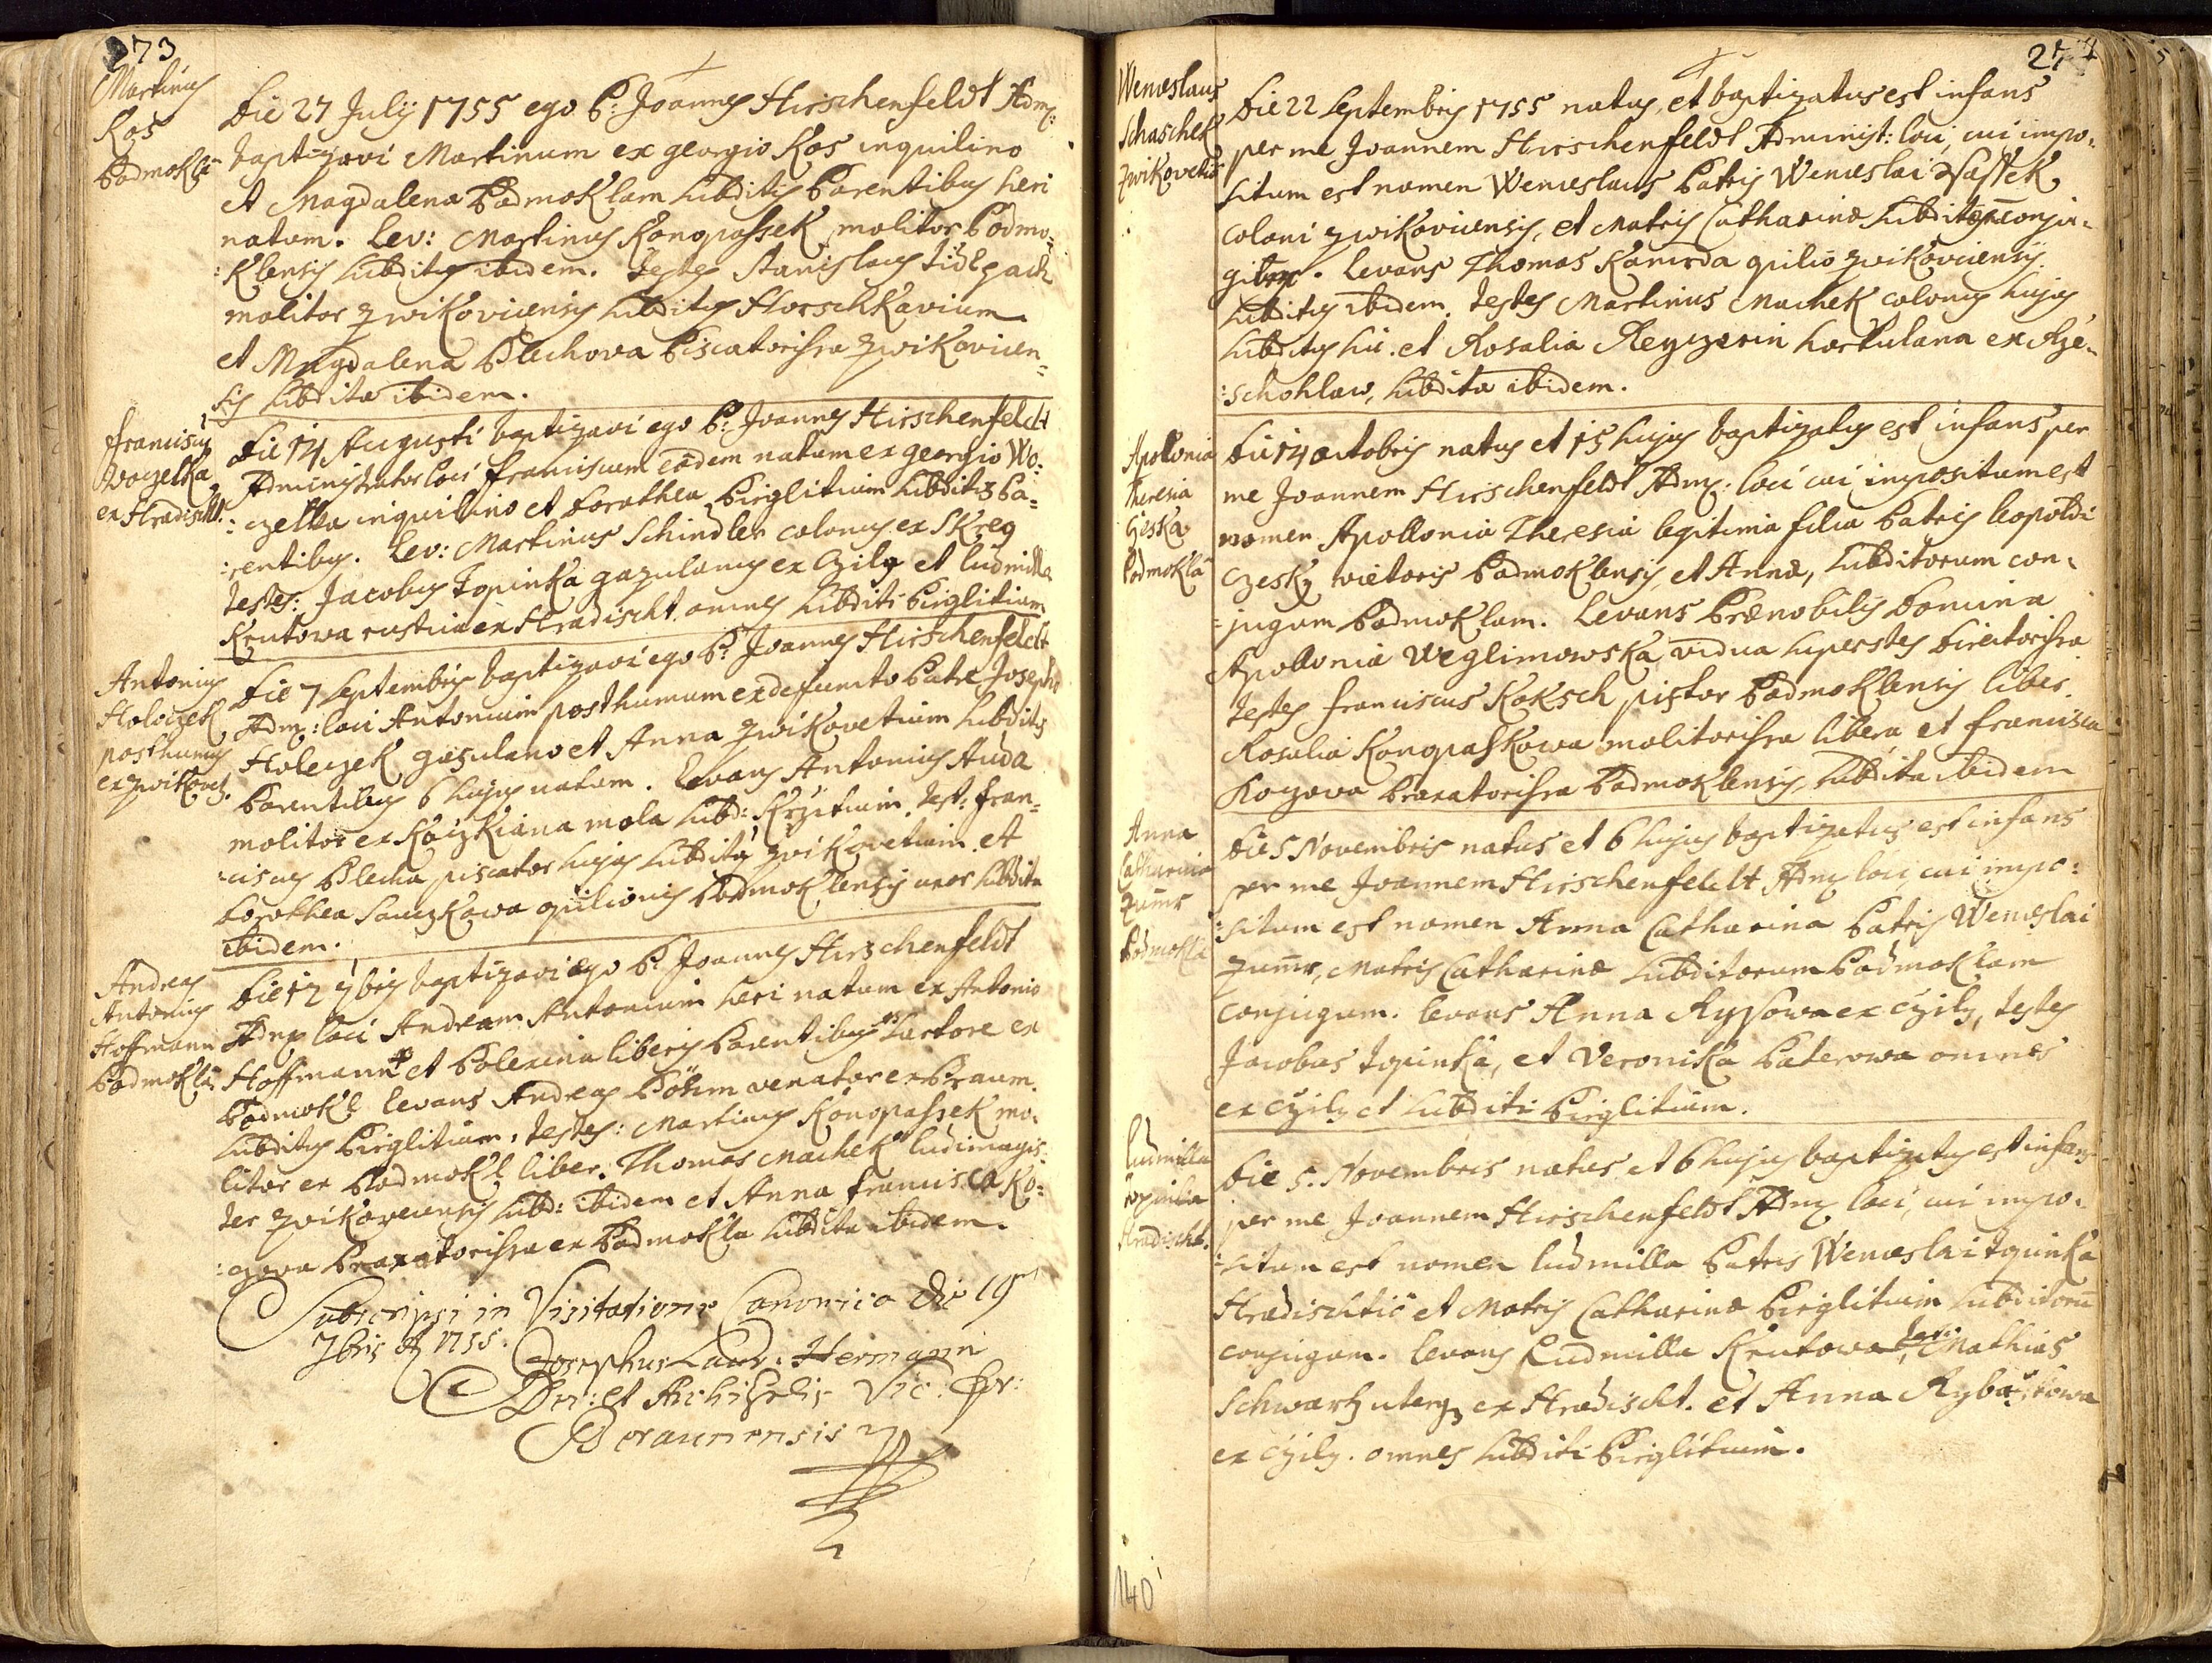 273
Martinus
Kos
Podmoklä
Die 27 July 1755 ego P: Joannes Hirschenfeldt Adm:
baptizavi Martinum ex georgio Kos inquilino
et Magdalena Podmoklam subditis Parentibus heri
natum. Lev: Martinus Konopassek molitor Podmo=
:klensis subditus ibidem. testes Stanislaus
molitor zwikoviensis subditus Horschkavium
et Magdalena Plechova Piscatorissa zwikovien=
sis subdita ibidem.
Franciscus
Woczelka
ex Hradischt
Die 14 Augusti baptizavi ego P: Joannes Hirschenfeldt
Administrator loci Franciscum eodem natum ex georgio Wo:
:czelka inquilino et Dorothea Pirglitium subditis Pa=
:rentibus. Lev: Martinus Schindler colonus ex Skreg
testes: Jacobus Topinka gazulanus ex Czily et ludmilla
Krutowa rustica ex Hradischt. omnes subditi Pirglitium
Antonius
Holeczek
posthumus
ex zwikovetz.
Die 7 Septembris baptizavi ego P: Joannes Hirschenfeldt
Adm: loci Antonium posthumum ex defuncto Patre Josepho
Holeczek gasulano et Anna zwikovetium subditis
Parentibus 6 hujus natum. Levans Antonius Auda
molitor ex Koczkiana mola subd: Krzitium. test: Fran=
:ciscus Plecha piscator hujus subditus zwikovetium et
Dorothea Sauczkowa opilionis Podmoklensis uxor subdita
ibidem.
Andreas
Antonius
Hoffmann
Podmoklä
Die 12 7bris baptizavi ego P: Joannes Hirschenfeldt
Adm loci Andream Antonium heri natum ex Antonio
Hoffmann et Polexina liberis Parentibus Sartore ex
Podmokl levans Andreas Böhm venator ex Braum.
subditus Pirglitium, testes: Martinus Konopassek mo:
litor ex Podmokl liber. Thomas Machek ludimagis:
ter zwikoveiensis subd: ibidem et Anna Francisca Ko:
:zova Braxatorissa ex Podmokla subdita ibidem.
Subscripsi in Visitatione Canonica die 19
7bris 1755.
Josephus Laur: Hermann
Dec: et Vic: For:
Beraunensis
274
Wenceslaus
Schaschek
zwikovetio
Die 22 Septembris 1755 natus, et baptizatus est infans
per me Joannem Hirschenfeldt Administ: loci, cui impo:
situm est nomen Wenceslaus Patris Wenceslai
coloni zwikoviensis, et Matris Catharinæ subditorum conju:
gum. Levans Thomas Kamrda opilio zwikoviensis
subditus ibidem. testes Martinus Machek colonus hujus
subditus hic. et Rosalia Reyzerin hortulana ex Rze:
:schohlaw, subdita ibidem.
Apollonia
Theresia
Czeska
Podmoklä
Die 14 octobris natus et 15 hujus baptizatus est infans per
me Joannem Hirschenfeldt Adm: loci cui impositum est
nomen Apollonia Theresia legitima filia Patris leopoldi
Czesky vietoris Podmoklensis et Annæ, subditorum con:
:jugum Podmoklam. Levans Prænobilis Domina
Apollonia Weglimowska vidua superstes Directorissa
testes Franciscus Koksch pistor Podmoklensis liber.
Rosalia Konopaskowa molitorissa libera et Francisca
Kozova Braxatorissa Podmoklensis, subdita ibidem
Anna
Catharina
zumr
Podmoklä
Die 5 Novembris natus et 6 hujus baptizatus est infans
per me Joannem Hirschenfeldt Adm loci, cui impo:
:situm est nomen Anna Catharina Patris Wenceslai
zumr, Matris Catharinæ subditorum Podmoklam
conjugum. levans Anna Rysowa ex czily, testes
Jacobus topinka, et Veronika Paterowa omnes
ex czily et subditi Pirglitium.
ludmilla
topinka
Hradischt.
Die 5. Novembris natus et 6 hujus baptizatus est infans
per me Joannem Hirschenfeldt Adm loci, cui impo:
:situm est nomen ludmilla Patris Wenceslai topinka
Hradischtio et Matris Catharinæ Pirglitium subditorum
conjugum. levans Ludmilla Krutowa, testis Mathias
Schwartz ex Hradischt. et Anna
ex czily. omnes subditi Pirglitium.
140